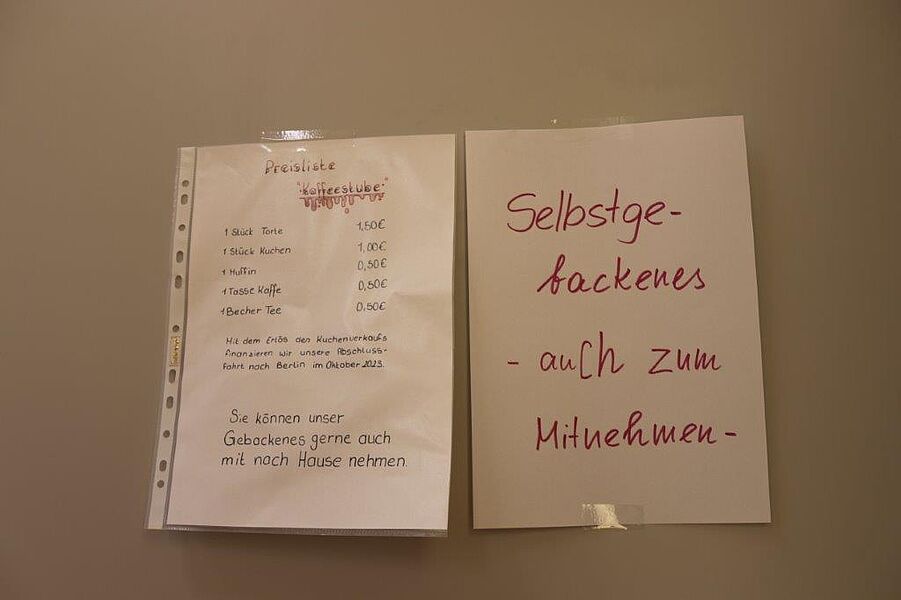 Preisliste
"Kaffeestube"
1 Stück Torte 1,50€
1 Stück Kuchen 1,00€
1 Muffin 0,50€
1 Tasse Kaffe 0,50€
1 Becher Tee 0,50€
Mit dem Erlös den Kuchenverkaufs
finanzieren wir unsere Abschluss-
fahrt nach Berlin im Oktober 2023.
Sie können unser
Gebackenes gerne auch
mit nach Hause nehmen.
Selbstge-
backenes
- auch zum
Mitnehmen-